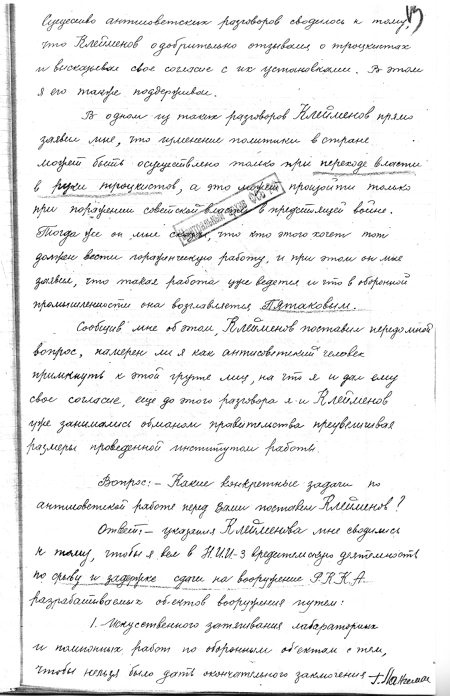 13
Существо антисоветских разговоров сводилось к тому,
что Клейменов одобрительно отзывался о троцкистах
и высказывал свое согласие с их установками. В этом
я его также поддерживал.
В одном из таких разговоров Клейменов прямо
заявил мне, что изменение политики в стране
может быть осуществлено только при переходе власти
в руки троцкистов, а это может произойти только
при поражении советской власти в предстоящей войне.
Тогда же он мне сказал, что кто этого хочет тот
должен вести горафическую работу, и при этом он мне
заявил, что такая работа уже ведется и что в оборонной
промышленности она возглавляется Пятаковым.
Сообщив мне об этом, Клейменов поставил передо мной
вопрос, намерен ли я как антисоветский человек
примкнуть к этой группе лиц, на что я и дал ему
свое согласие, еще до этого разговора я и Клейменов
уже занимались обманом правительства преувеличивая
размеры проведенной институтом работы.
Вопрос: – Какие конкретные задачи по
антисоветской работе перед Вами поставил Клейменов?
Ответ: – указания Клейменова мне сводились
к тому, чтобы я вел в Н.И.И-3 вредительскую деятельность
по срыву и задержке сдачи на вооружение Р.К.К.А.
разрабатываемых объектов вооружения путем:
1. Искусственного затягивания лабораторных
и полигонных работ по оборонным объектам с тем,
чтобы нельзя было дать окончательного заключения